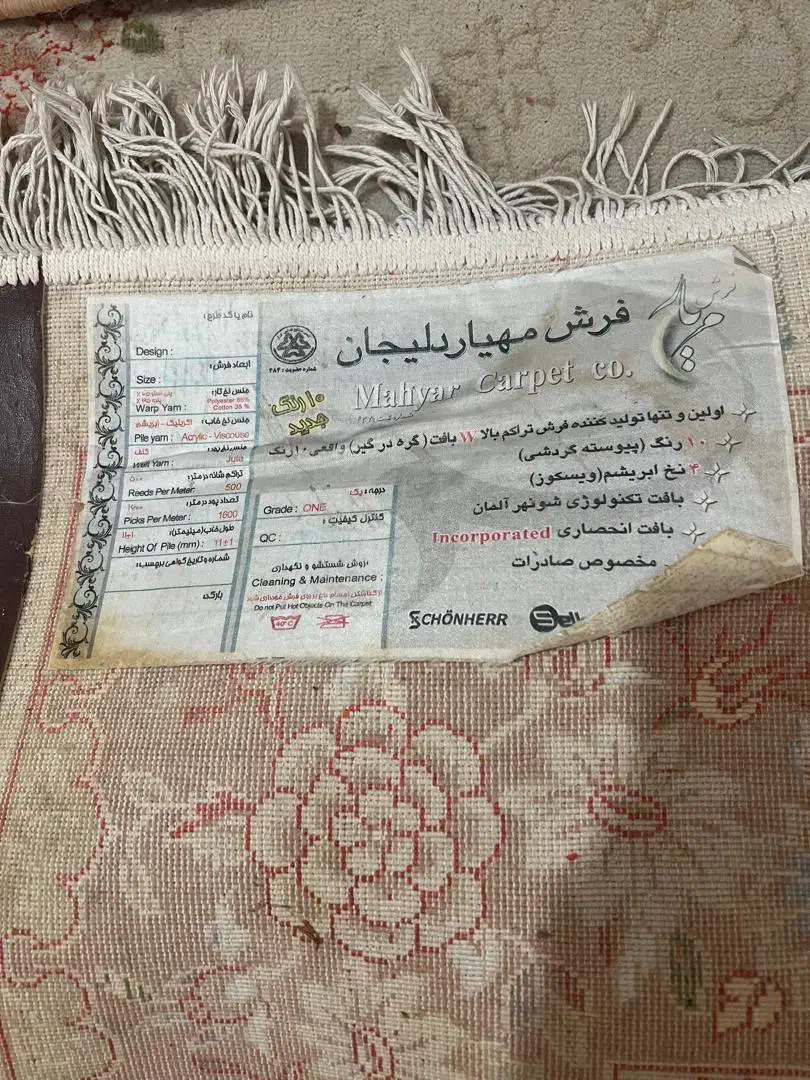 فرش مهیار دلیجان
Mahyar Carpet co.
شماره عضویت : ۲۸۴
۱۰ رنگ
جدید
اولین و تنها تولید کننده فرش تراکم بالا W بافت ( گره در گیر) واقعی ۱۰ رنگ
۱۰ رنگ (پیوسته گردشی)
۴ نخ ابریشم(ویسکوز)
بافت تکنولوژی شونهر آلمان
بافت انحصاری Incorporated
مخصوص صادرات
SCHÖNHERR
نام یا کد طرح:
Design :
ابعاد فرش:
Size :
جنس نخ تار:
Warp Yarn : Polyester 65%
Cotton 35 %
جنس نخ خاب: اکریلیک - ابریشم
Pile yarn : Acrylic - Viscouse
جنس نخ پود: کنف
Weft Yarn : Jute
تراکم شانه در متر: ۵۰۰
Reeds Per Meter: 500
تعداد پود در متر:
Picks Per Meter : 1600
طول خاب(میلیمتر): ۱۱±۱
Height Of Pile (mm) : 11±1
شماره و تاریخ گواهی برچسب:
بارکد:
درجه: یک
Grade : ONE
کنترل کیفیت :
QC :
روش شستشو و نگهداری:
Cleaning & Maintenance :
از گذاشتن اجسام داغ بر روی فرش خودداری شود
Do not Put Hot Objects On The Carpet
40°C